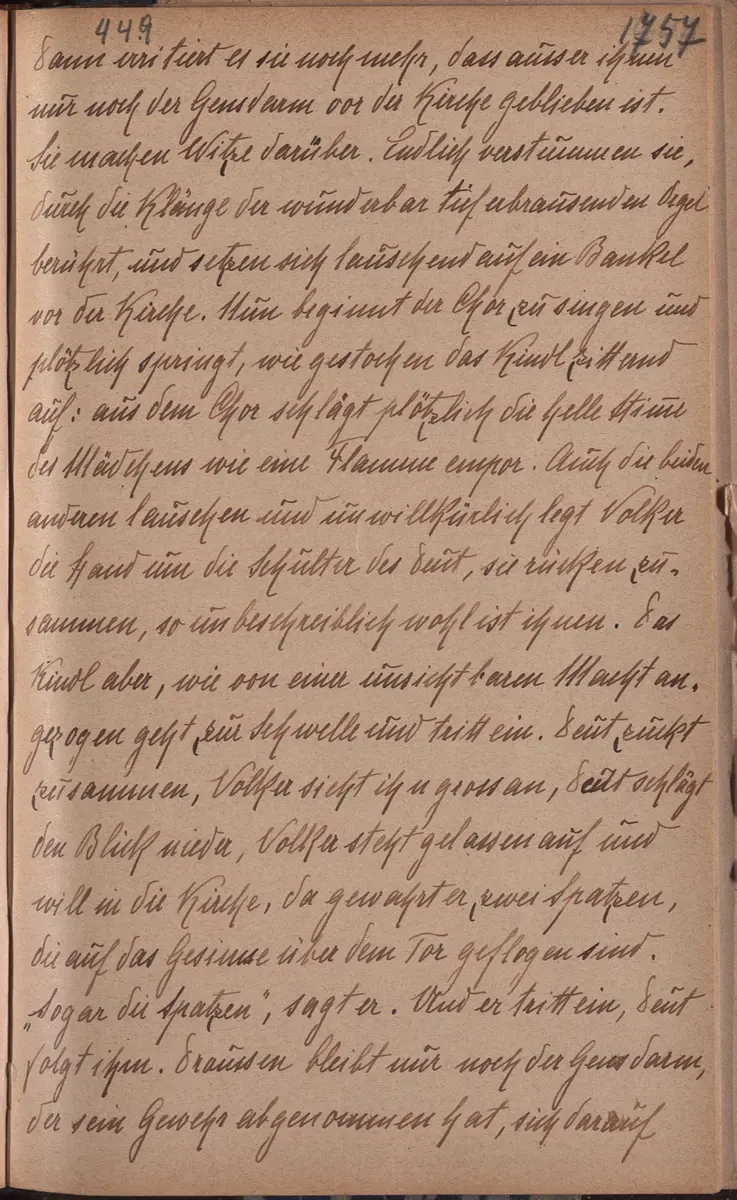 449 1757
Dann irritiert es sie noch mehr, dass ausser ihnen
nur noch der Gensdarm vor der Kirche geblieben ist.
Sie machen Witze darüber. Endlich verstummen sie,
durch die Klänge der wunderbar tief erbrausenden Orgel
berührt, und setzen sich lauschend auf ein Bankel
vor der Kirche. Nun beginnt der Chor zu singen und
plötzlich springt, wie gestochen das Kindl zitternd
auf: aus dem Chor schlägt plötzlich die helle Stimme
des Mädchens wie eine Flamme empor. Auch die beiden
anderen lauschen und unwillkürlich legt Volker
die Hand um die Schulter des Deut, sie rücken zu-
sammen, so unbeschreiblich wohl ist ihnen. Das
Kindl aber, wie von einer unsichtbaren Macht an-
gezogen geht zur Schwelle und tritt ein. Deut zuckt
zusammen, Volker sieht ihn gross an, Deut schlägt
den Blick nieder, Volker steht gelassen auf und
will in die Kirche, da gewahrt er zwei Spatzen,
die auf das Gesimse über dem Tor geflogen sind.
„Sogar die Spatzen", sagt er. Und er tritt ein, Deut
folgt ihm. Draussen bleibt nur noch der Gensdarm,
der sein Gewehr abgenommen hat, sich darauf